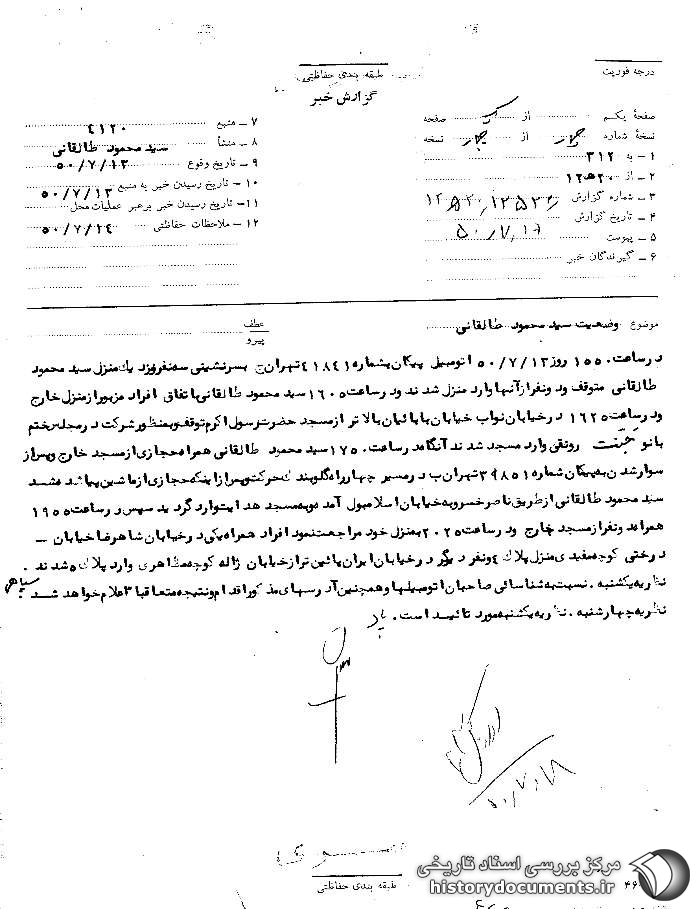 درجه فوریت
طبقه بندی حفاظتی
گزارش خبر
صفحهٔ یکم از صفحه
نسخهٔ شماره چهار از چهار نسخه
۱ – به ۳۱۲
۲ – از ۲۰ه۱۲
۳ – شماره گزارش
۴ – تاریخ گزارش ۵۰/۷/۱۸
۵ – پیوست
۶ – گیرندگان خبر
۷ – منبع ۴۱۲۰
۸ – منشأ سید محمود طالقانی
۹ – تاریخ وقوع ۵۰/۷/۱۳
۱۰ – تاریخ رسیدن خبر به منبع ۵۰/۷/۱۳
۱۱ – تاریخ رسیدن خبر برهبر عملیات محل
۱۲ – ملاحظات حفاظتی ۵۰/۷/۱۴
موضوع وضعیت سید محمود طالقانی
عطف
پیرو
در ساعت ۱۵۵۰ روز ۵۰/۷/۱۳ اتومبیل پیکان بشماره ۴۱۸۴۱ تهران ج بسرنشینی سه نفر نزدیک منزل سید محمود
طالقانی متوقف و دو نفر از آنها وارد منزل شدند و در ساعت ۱۶۰۵ سید محمود طالقانی باتفاق افراد مزبور از منزل خارج
و در ساعت ۱۶۲۵ در خیابان نواب خیابان بابائیان بالاتر از مسجد حضرت رسول اکرم توقف و بمنظور شرکت در مجلس ختم
بانو رونقی وارد مسجد شدند آنگاه در ساعت ۱۷۵۰ سید محمود طالقانی همراه حجازی از مسجد خارج و پس از
سوار شدن به پیکان شماره ۳۹۸۵۱ تهران ب در مسیر چهارراه گلوبندک حرکت و پس از اینکه حجازی از ماشین پیاده شد
سید محمود طالقانی از طریق ناصرخسرو به خیابان اسلامبول آمده و به مسجد هدایت وارد گردید سپس در ساعت ۱۹۵۵
همراه دو نفر از مسجد خارج و در ساعت ۲۰۲۵ به منزل خود مراجعت نمود افراد همراه یکی در خیابان شاهرضا خیابان –
درختی کوچه مفیدی منزل پلاک ۴ و نفر دیگر در خیابان ایران پائین تر از خیابان ژاله کوچه مظاهری وارد پلاک ۵ شدند .
نظریه یکشنبه . نسبت به شناسائی صاحبان اتومبیلها و همچنین آدرسهای مذکور اقدام و نتیجه متعاقبا اعلام خواهد شد سیاهی
نظریه چهارشنبه . نظریه یکشنبه مورد تائید است .
۵۰/۷/۱۸
طبقه بندی حفاظتی
مرکز بررسی اسناد تاریخی
historydocuments.ir